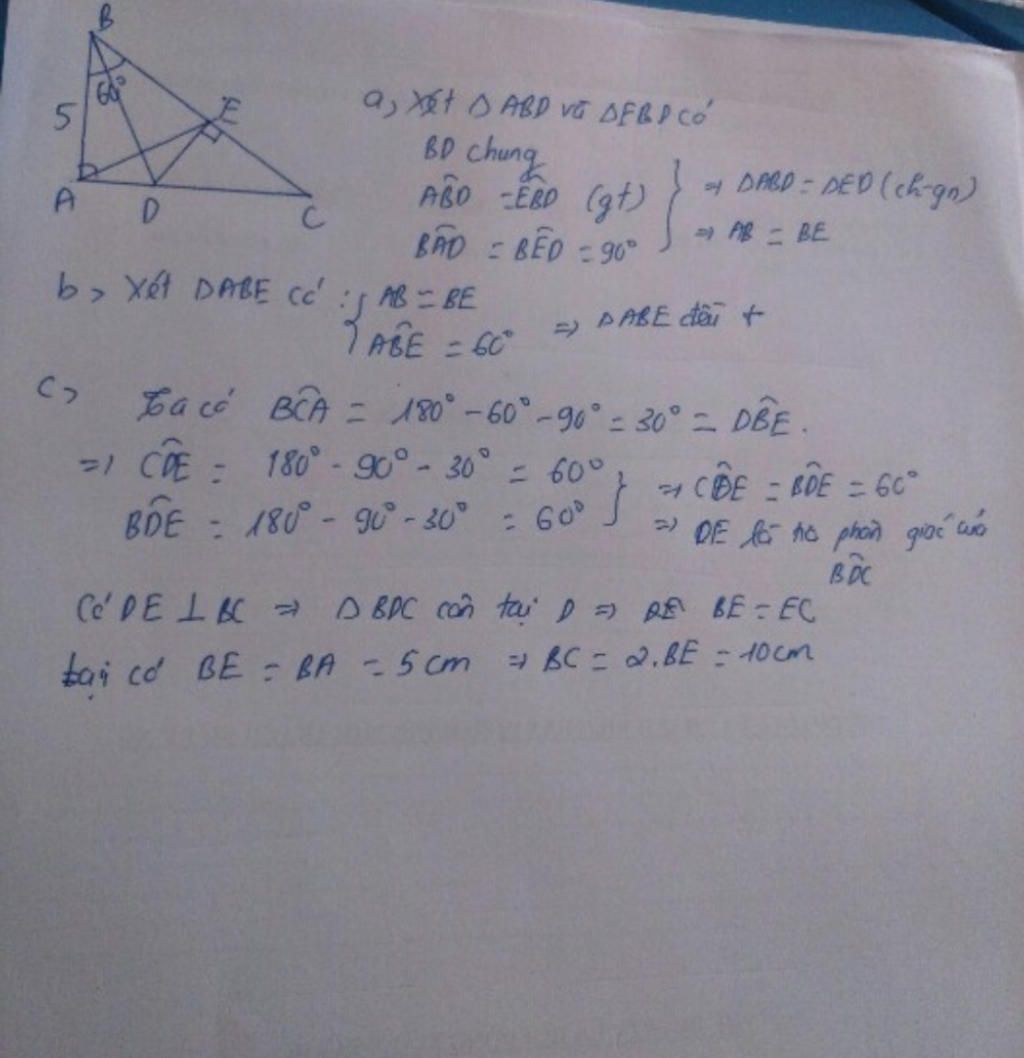 B
60°
5
E
A
D
C
a, Xét Δ ABD và ΔEBD có
BD chung
ABD̂ = EBD̂ (gt)
BÂD = BÊD = 90°
⇒ ΔABD = ΔED (ch-gn)
⇒ AB = BE
b> Xét ΔABE có : { AB = BE
AB̂E = 60° ⇒ ΔABE đều +
c>
Ta có BĈA = 180° - 60° - 90° = 30° = DB̂E.
=> CD̂E = 180° - 90° - 30° = 60°
BD̂E = 180° - 90° - 30° = 60°
⇒ CD̂E = BD̂E = 60°
⇒ DE là phân giác của
BD̂C
Có DE ⊥ BC ⇒ Δ BDC cân tại D ⇒ BE = EC
lại có BE = BA = 5 cm ⇒ BC = 2.BE = 10cm